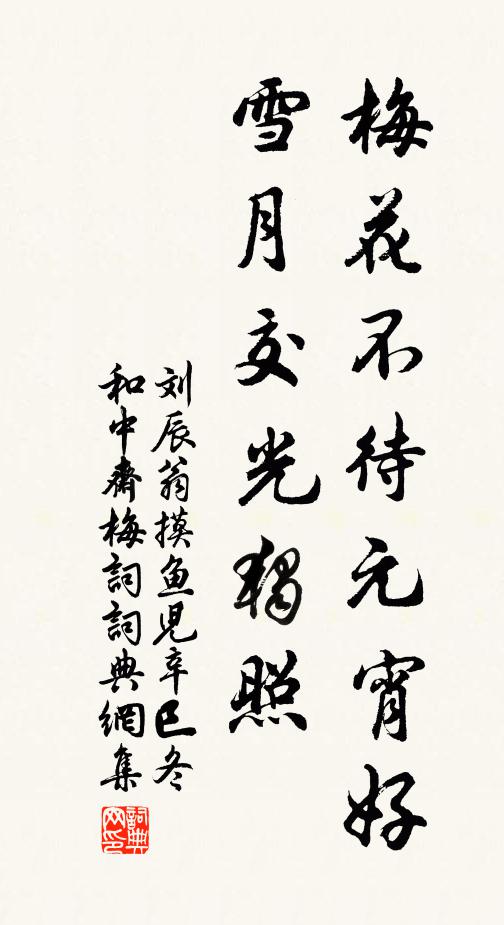 梅花不待元宵好
雪月交光独照
刘辰翁摸鱼儿辛巳冬
和中齋梅詞詞典網集
詞典网印